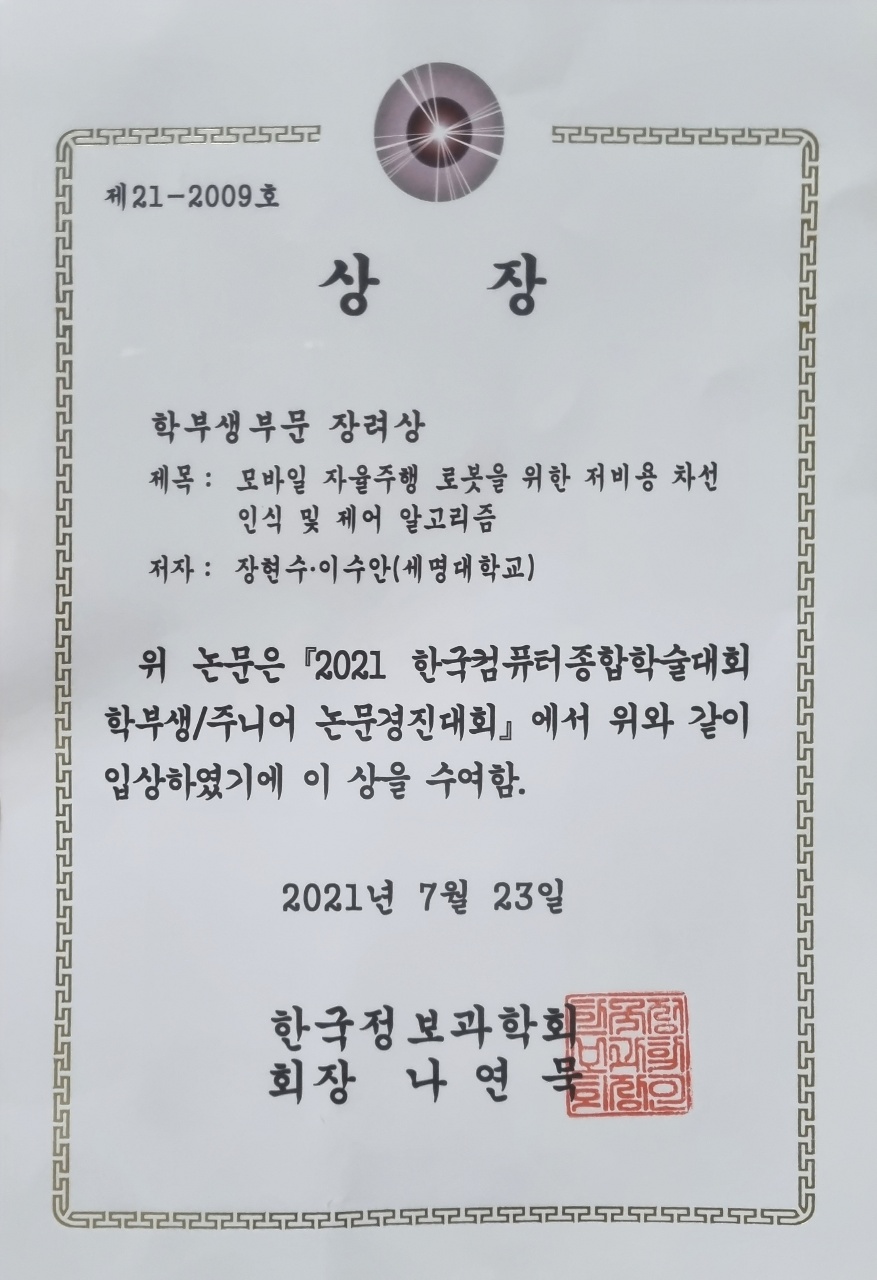 제21-2009호
상 장
학부생부문 장려상
제목: 모바일 자율주행 로봇을 위한 저비용 차선
인식 및 제어 알고리즘
저자: 장현수·이수안(세명대학교)
위 논문은 『2021 한국컴퓨터종합학술대회
학부생/주니어 논문경진대회』에서 위와 같이
입상하였기에 이 상을 수여함.
2021년 7월 23일
한국정보과학회
회장 나연묵
한국정
보과학
회장인